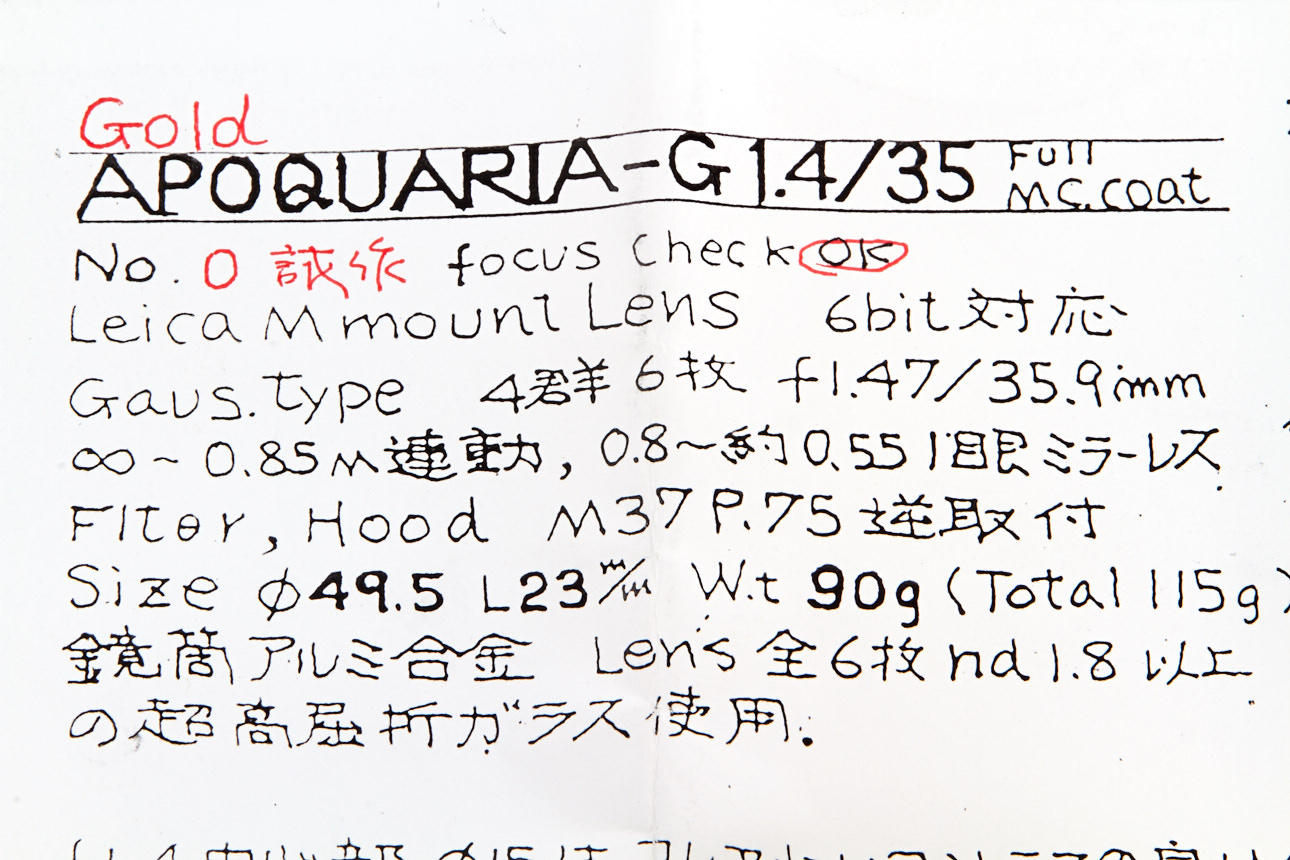 Gold
APOQUARIA-G 1.4/35 Full MC.coat
No. 0 試作 focus check OK
Leica M mount Lens 6bit 対応
Gaus.type 4群6枚 f1.47/35.9mm
∞~0.85M連動, 0.8~約0.55 1眼ミラーレス
Flter, Hood M37 P.75 逆取付
Size φ49.5 L23 m/m W.t 90g (Total 115g)
鏡筒アルミ合金 Len's 全6枚 nd 1.8 以上
の超高屈折ガラス使用.